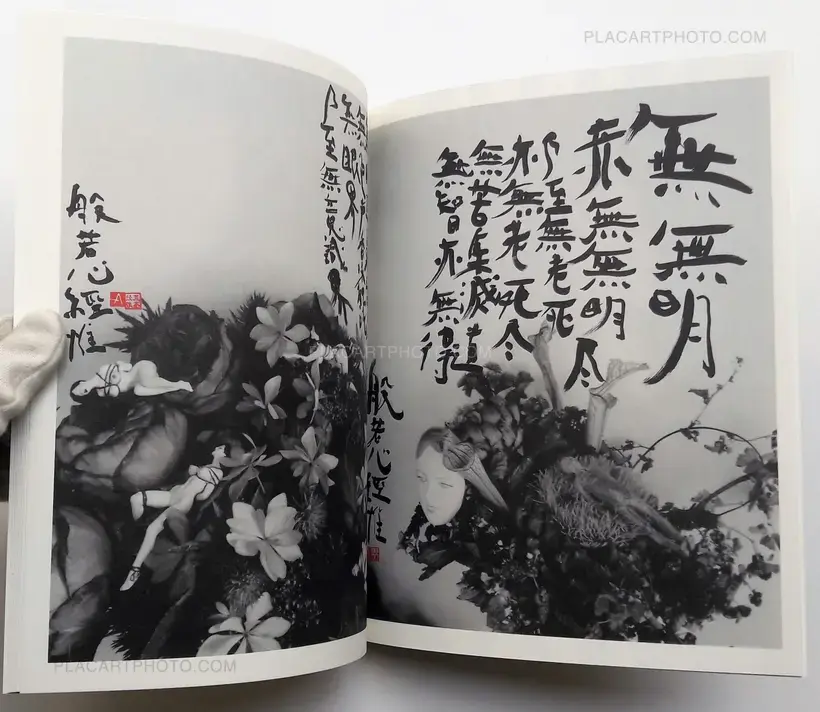 無眼界
乃至無意識界
般若心経惟
A
無無明
亦無無明尽
乃至無老死
亦無老死尽
無苦集滅道
無智亦無得
般若心経惟
PLACARTPHOTO.COM
PLACARTPHOTO.COM
PLACARTPHOTO.COM